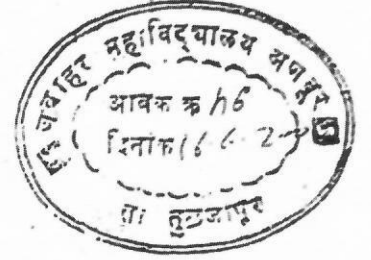 जवाहर महाविद्यालय अणदूर
आवक क्र 156
दिनांक 16
ता तुळजापूर